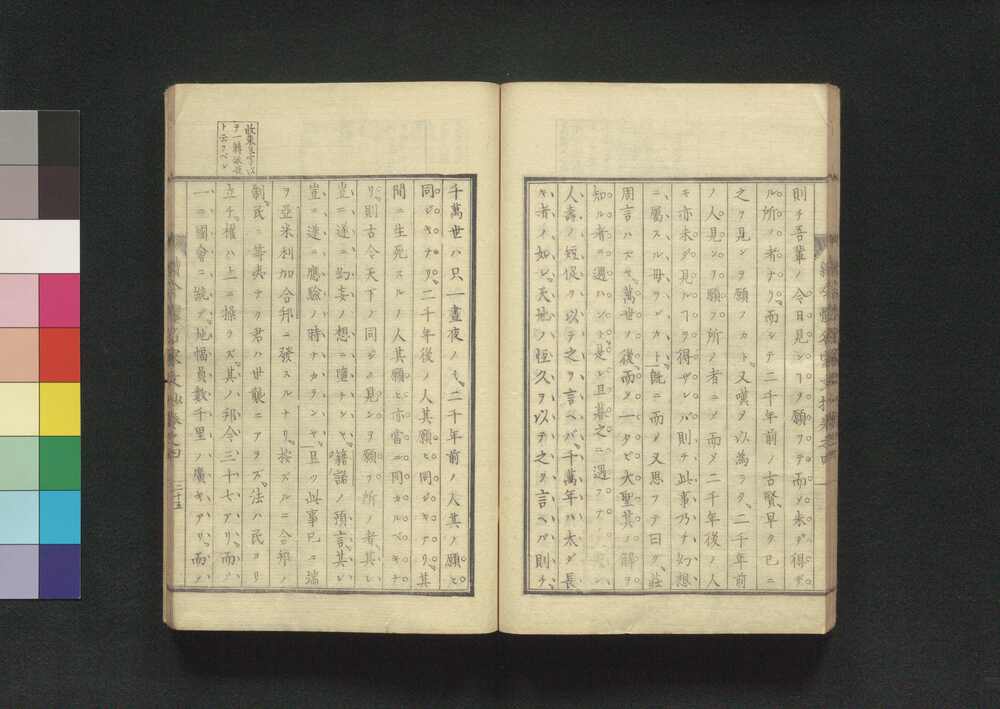 則チ吾輩ノ今日見ンヿヲ願フテ而メ未ダ得ザ
ル所ノ者ナリ而シテ二千年前ノ古賢早ク已ニ
之ヲ見ンヲ願フカト又嘆ヲ以為ラク二千年前
ノ人見ンヿヲ願フ所ノ者ニメ而メ二千年後ノ人
モ亦未ダ見ルヿヲ得ザレバ則チ此事乃チ幻想
ニ屬スル毋ランカト既ニ而メ又思フテ曰ク莊
周言ハズヤ萬世ノ後而ヲ一タビ大聖其ノ解ヲ
知ル者ニ遇ハントハ是レ旦暮之ニ遇フナリ
人壽ノ短促ヲ以テ之ヲ言ヘバ千萬年ハ太ダ長
キ者ノ如シ天地ノ恒久ヲ以テ之ヲ言ヘバ則チ
千萬世ハ只一晝夜ノミ二千年前ノ人其ノ願ヒ
同ジキナリ二千年後ノ人其願ヒ同ジキナリ其
間ニ生死スルノ人其願ヒ亦當ニ同カルベキナ
リ則古今天下ノ同ジク見ンヿヲ願フ所ノ者其レ
豈ニ遂ニ幻妄ノ想ニ墮チンヤ籍詔ノ預言其レ
豈ニ遂ニ應驗ノ時ナカランヤ且ツ此事已ニ端
ヲ亞米利加合邦ニ發スルナリ按ズルニ合邦ノ
制民ニ等夷ナク君ハ世襲ニアラズ法ハ民ヨリ
立チ權ハ上ニ操ラズ其ノ邦今三十七アリ而シ
一ニ國會ニ統ブ地幅員數千里ノ廣キアリ而シ
二十五